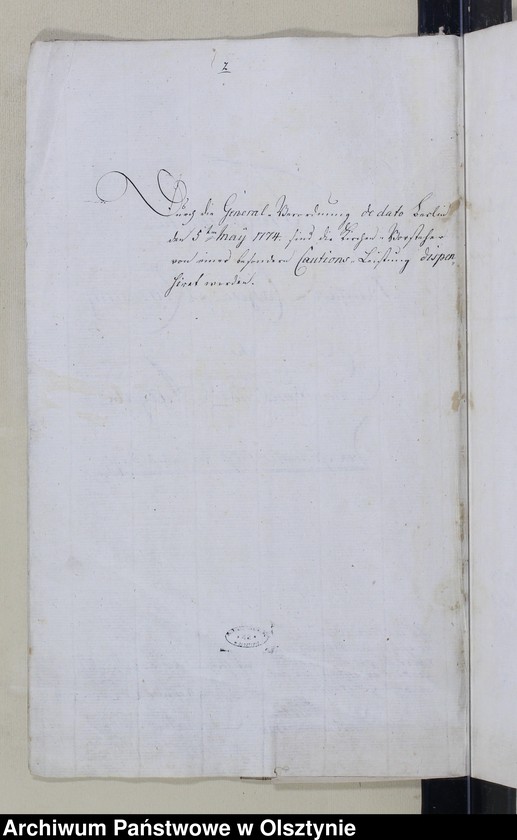 2
Durch die General-Verordnung de dato Berlin
den 5ten May 1774. sind die Kirchen-Vorsteher
von einer besondern Cautions-Leistung dispen,
siret worden.
Archiwum Państwowe w Olsztynie